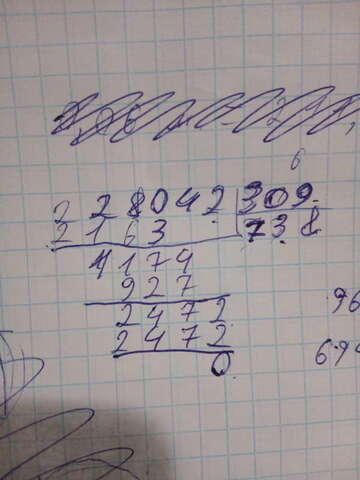 6
228042 309
2163 738
1174
927
2472
96
2472
694
0